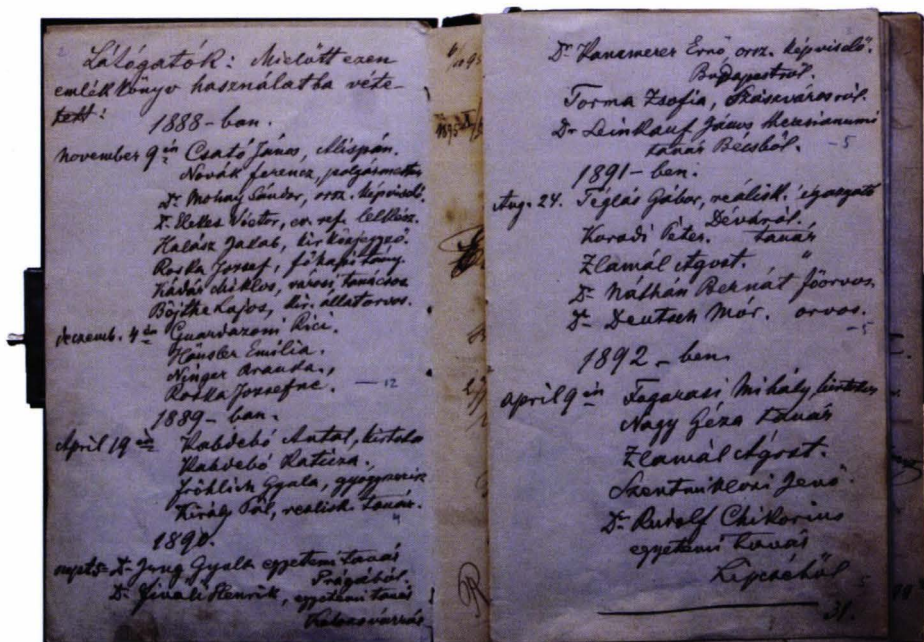 Látógatók: Mielőtt ezen
emlékkönyv használatba véte-
tett:
1888-ban.
november 9 én Csató János, Alispán.
Novák ferencz, polgármester
Dr. Mohay Sándor, orsz. képviselő.
Dr. Elekes Victor, ev. ref. lelkész.
Halász Jakab, kir. közjegyző.
Roska József, főkapitány.
Kádár Miklos, városi tanácsos
Böjthe Lajos, kir. állatorvos.
decemb. 4 én Guardazoni Rici.
Häusler Emilia.
Ninger Aranda.,
Roska Jozsefné. — 12
1889-ban.
April 19 én Kabdebó Antal, birtokos
Kabdebó Katicza.,
Fröhlich Gyula, gyógyszerész
Király Pál, realisk. tanár.
4
1890.
Dr. Jung Gyula egyetemi tanár
Prágából.
Dr. Finali Henrik, egyetemi tanár
Kolozsvárrás
Dr. Hanamerer Ernő, orsz. képviselő.
Budapestről.
Torma Zsofia, Szászvárosról.
Dr. Leinkauf János theresianumi
tanár Bécsből. -5
1891-ben.
Aug. 24. Téglás Gábor, reálisk. igazgató
Déváról.
Koradi Péter. tanár
Zlamál Ágost. "
Dr. Náthán Bernát főorvos
Dr. Deutsch Mór. orvos.
-5
1892-ben.
april 9 én Fogarasi Mihály
Nagy Géza tanár
Zlamál Ágost.
Szentmiklosi Jenő.
Dr. Rudolf Chikorius
egyetemi tanár
Lipcséből
5
31.